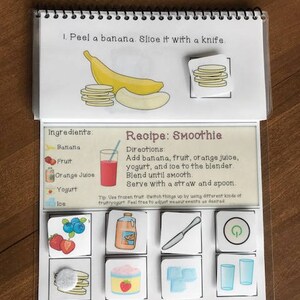 1. Peel a banana. Slice it with a knife.
Ingredients:
Banana
Fruit
Orange Juice
Yogurt
Ice
Recipe: Smoothie
Directions:
Add banana, fruit, orange juice,
yogurt, and ice to the blender.
Blend until smooth.
Serve with a straw and spoon.
Tip: Use frozen fruit. Switch things up by using different kinds of
fruit/yogurt. Feel free to adjust measurements as desired.